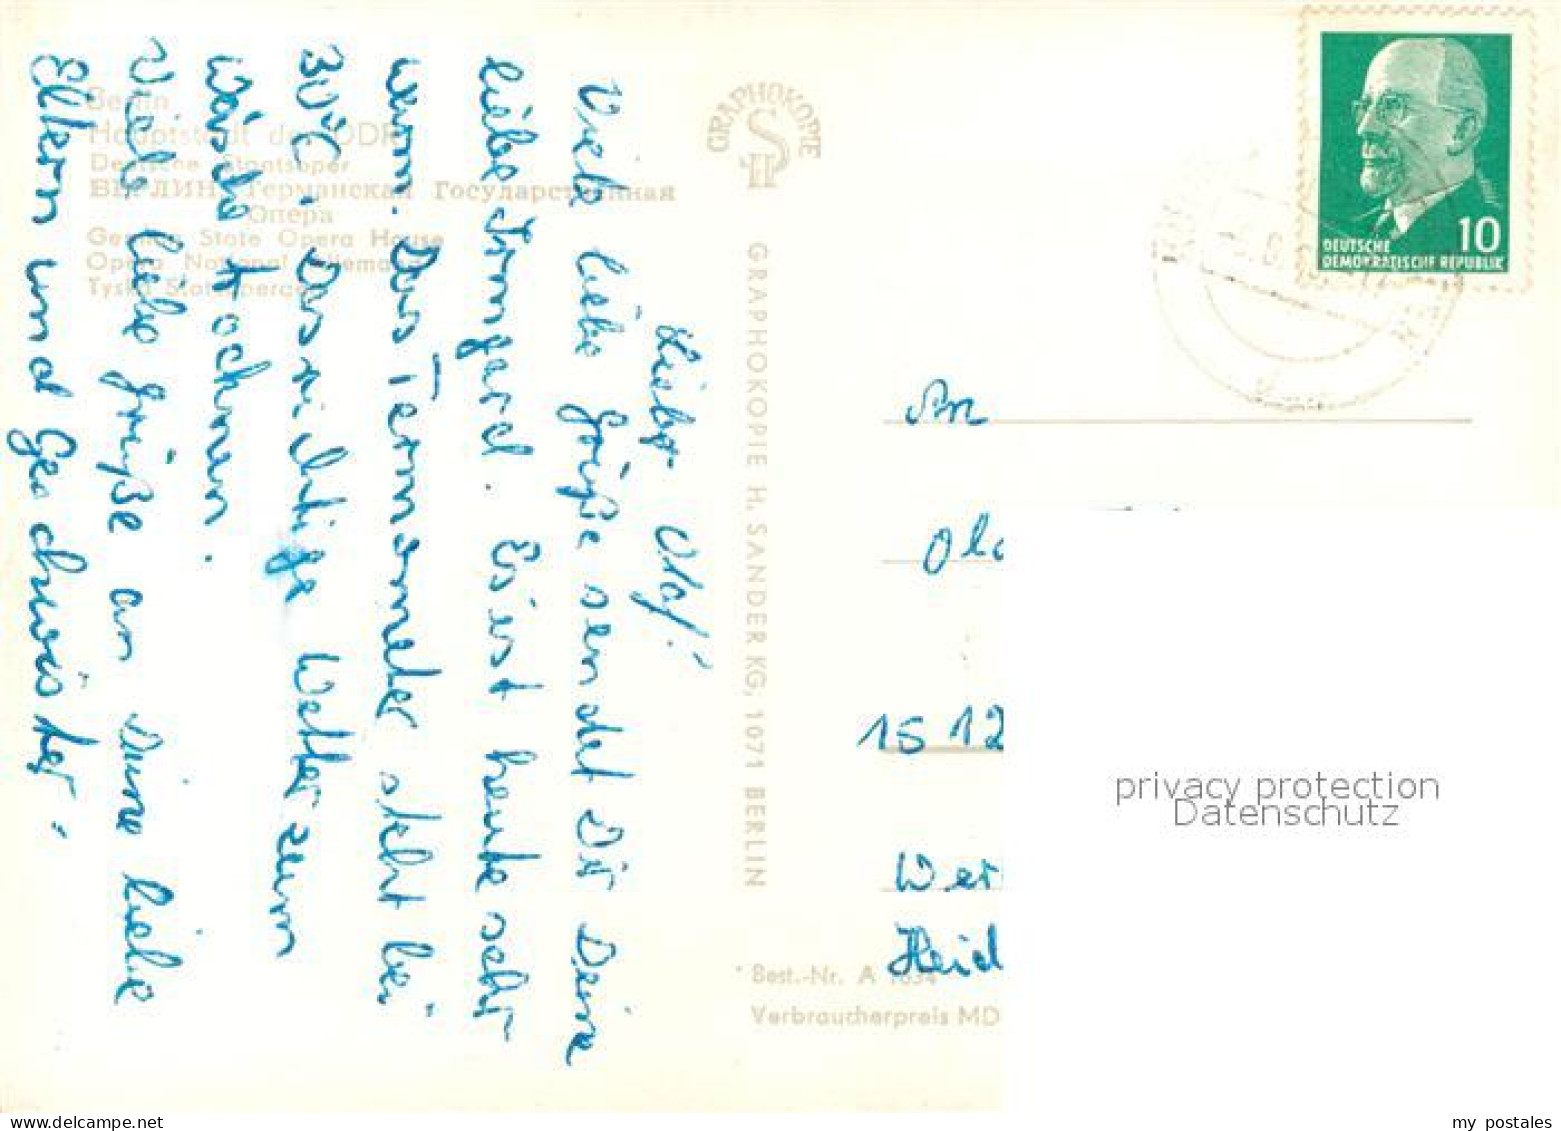 Berlin
Hauptstadt der DDR
Deutsche Staatsoper
БЕРЛИН Германская Государственная
Опера
German State Opera House
Opera National Allemand
Tyska Statsoperan
Lieber Olaf!
Viele liebe Grüße sendet Dir Deine
liebe Irmgard. Es ist heute sehr
warm. Das Termometer steht bei
30°C. Das richtige Wetter zum
Wäsche trocknen.
Viele liebe Grüße an Deine liebe
Eltern und Geschwister.
GRAPHOKOPIE
SH
GRAPHOKOPIE H. SANDER KG, 1071 BERLIN
10
DEUTSCHE
DEMOKRATISCHE REPUBLIK
An
Ola
1512
Wer
Heid
Best.-Nr. A 1634
Verbraucherpreis MD
privacy protection
Datenschutz
my postales